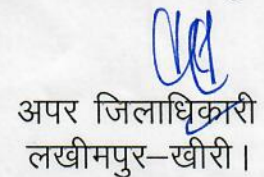 अपर जिलाधिकारी
लखीमपुर–खीरी।